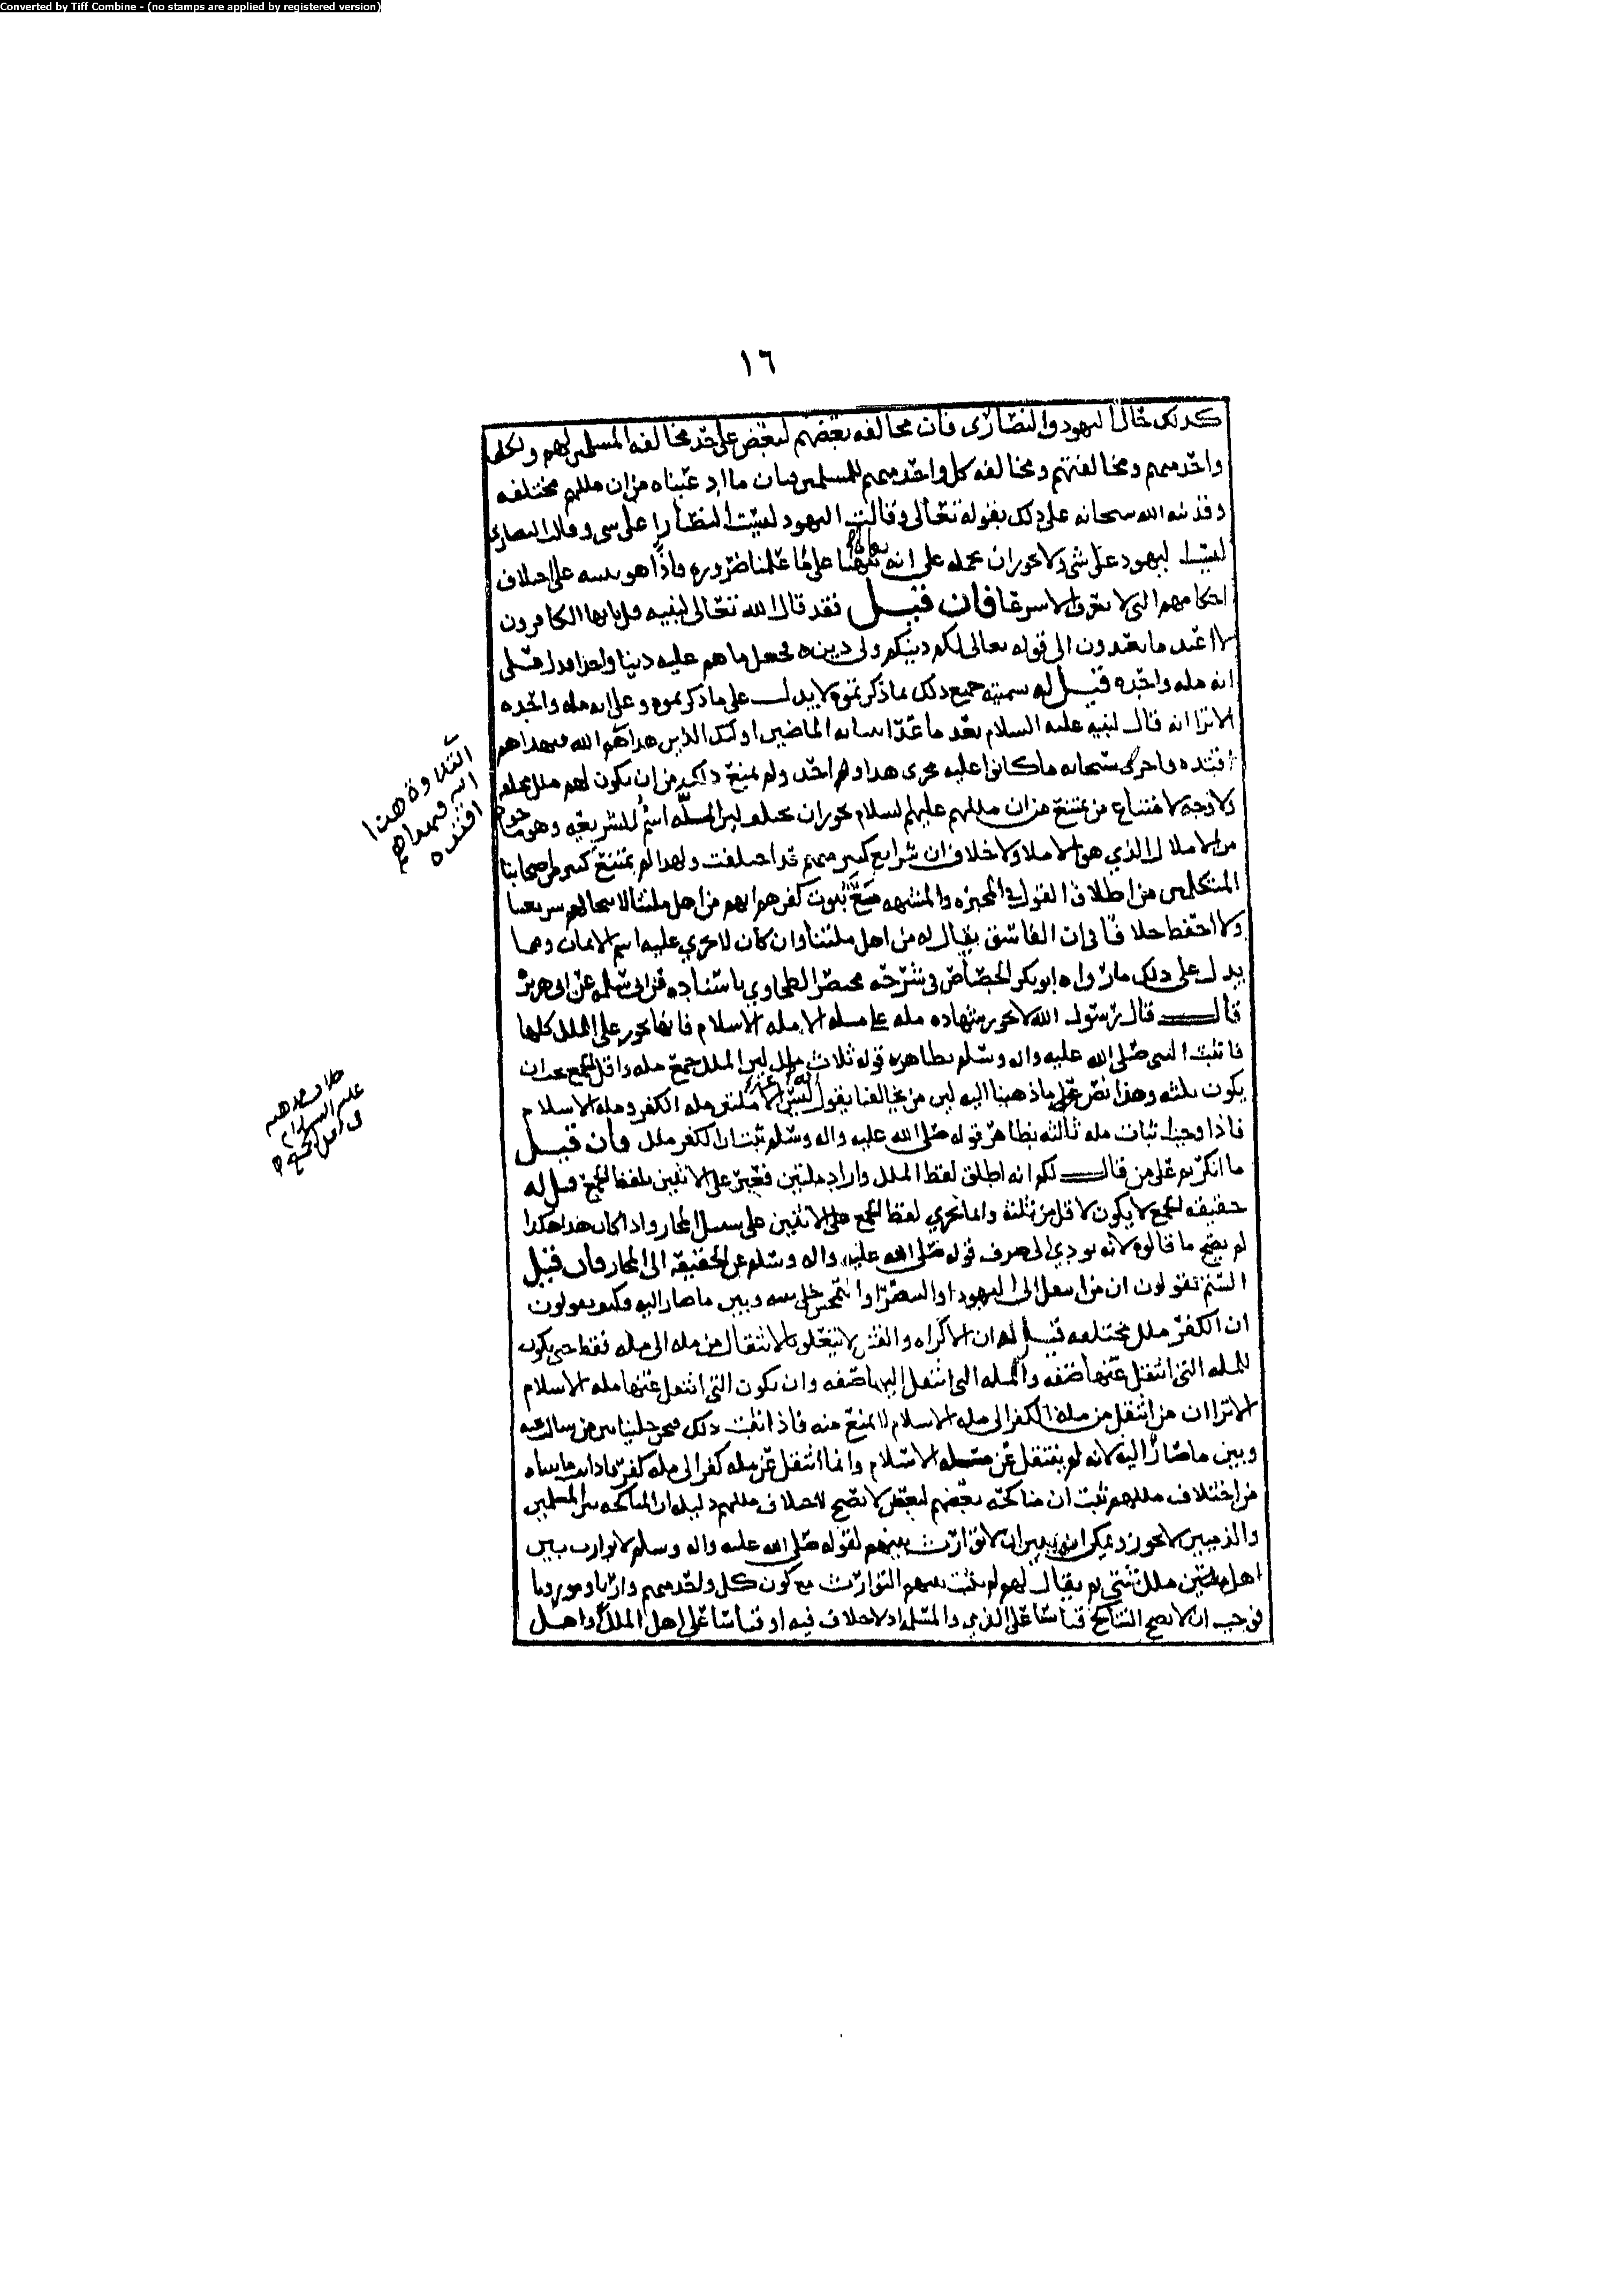 Converted by Tiff Combine - (no stamps are applied by registered version)
١٦
كذلك حال اليهود والنصارى فان مخالفه بعضهم لبعض على حد مخالفه المسلمين لهم ولكل
واحد منهم ومخالفتهم ومخالفه كل واحد منهم للمسلمين وبان ما ادعيناه من ان مللهم مختلفه
وقد نبه الله سبحانه على ذلك بقوله تعالى وقالت اليهود ليست النصارا على شى وقالت النصارى
ليست اليهود على شى ولا يجوز ان نحمله على انه نبهنا على ما علمنا ضروره فاذا هو نبيه على اختلاف
احكامهم التى لا تعرف الا شرعا فان قيل فقد قال الله تعالى لنبيه قل يا يها الكافرون
لا اعبد ما تعبدون الى قوله تعالى لكم دينكم ولى دين فجعل ما هم عليه دينا واحدا فدل على
انه مله واحده قيل له سميته جميع ذلك بما ذكرتموه لا يدل على ما ذكرتموه وعلى انه مله واحده
الا ترا انه قال لنبيه عليه السلام بعد ما عد انبيائه الماضين اولئك الذين هداهم الله فبهداهم
اقتده واجرى سبحانه ما كانوا عليه مجرى هدا ولم احد ولم يمنع ذلك من ان يكون لهم ملل مختلفه
ولا وجه لامتناع من يمتنع من ان مللهم عليهم السلام يجوز ان تختلف لين المله اسم للشريعه وهو ماخوذ
من الاملال الذي هو الاملا ولا خلاف ان شرايع كثير منهم قد اختلفت ولهذا لم يمتنع كثير من اصحابنا
المتكلمين من اطلاق القول في المجبره والمشبهه مع ثبوت كفرهم انهم من اهل ملتنا لانتحالهم شريعتنا
ولا احفظ خلافا في ان الفاسق يقال له من اهل ملتنا وان كان لا يجري عليه اسم الايمان ومما
يدل على ذلك ما رواه ابو بكر الجصاص في شرحه مختصر الطحاوي باسناده عن ابى سلمه عن ابى هريره
قال قال رسول الله لا تجوز شهاده مله على مله الا مله الاسلام فانها تجوز على الملل كلها
فاثبت النبى صلى الله عليه واله وسلم بظاهر قوله ثلاث ملل لين الملل جمع مله واقل الجمع يجب ان
يكون ثلثه وهذا نص على ما ذهبنا اليه لين من يخالفنا يقول ليس الا ملتين مله الكفر ومله الاسلام
فاذا وجب ثبات مله ثالثه بظاهر قوله صلى الله عليه واله وسلم ثبت ان الكفر ملل فان قيل
ما انكرتم على من قال لكم انه اطلق لفظ الملل واراد ملتين فعبر على الاثنين بلفظ الجمع قيل له
حقيقه الجمع لا يكون لاقل من ثلثه وانما تجري لفظ الجمع على الاثنين على سبيل المجاز واذا كان هذا هكذا
لم يصح ما قالوه لانه يودي الى صرف قوله صلى الله عليه واله وسلم عن الحقيقه الى المجاز فان قيل
الستم تقولون ان من انتقل الى اليهود او التنصر او التمجس خلى بينه وبين ما صار اليه وكيف تقولون
ان الكفر ملل مختلفه قيل له ان الاكراه والقتل لا يتعلق بالانتقال من مله الى مله فقط حتى يكون
للمله التى انتقل عنها صفه والمله التى انتقل اليها صفه وان تكون التى انتقل عنها مله الاسلام
الا ترا ان من انتقل من مله الكفر الى مله الاسلام لا يمنع منه فاذا ثبت ذلك فنحن خلينا بين من سالت عنه
وبين ما صار اليه لانه لم ينتقل عن مله الاسلام وانما انتقل عن مله كفر الى مله كفر فاذا ثبت ما بيناه
من اختلاف مللهم ثبت ان مناكحه بعضهم لبعض لا تصح لاختلاف مللهم دليله ان المناكحه بين المسلمين
والذميين لا تجوز ويمكن ان يبين ان لا توارث بينهم لقوله صلى الله عليه واله وسلم لا توارث بين
اهل ملتين ملل شتى ثم يقال لهم لم يثبت بينهم التوارث مع كون كل واحد منهم وارثا وموروثا
فوجب ان لا يصح التناكح قياسا على الذمي والمسلم اذ لا خلاف فيه او قياسا على اهل الملل واهل
التلاوة هنا
فبهداهم
اقتده
خلاف مذهبه
عليه السلام
فى اقل الجمع